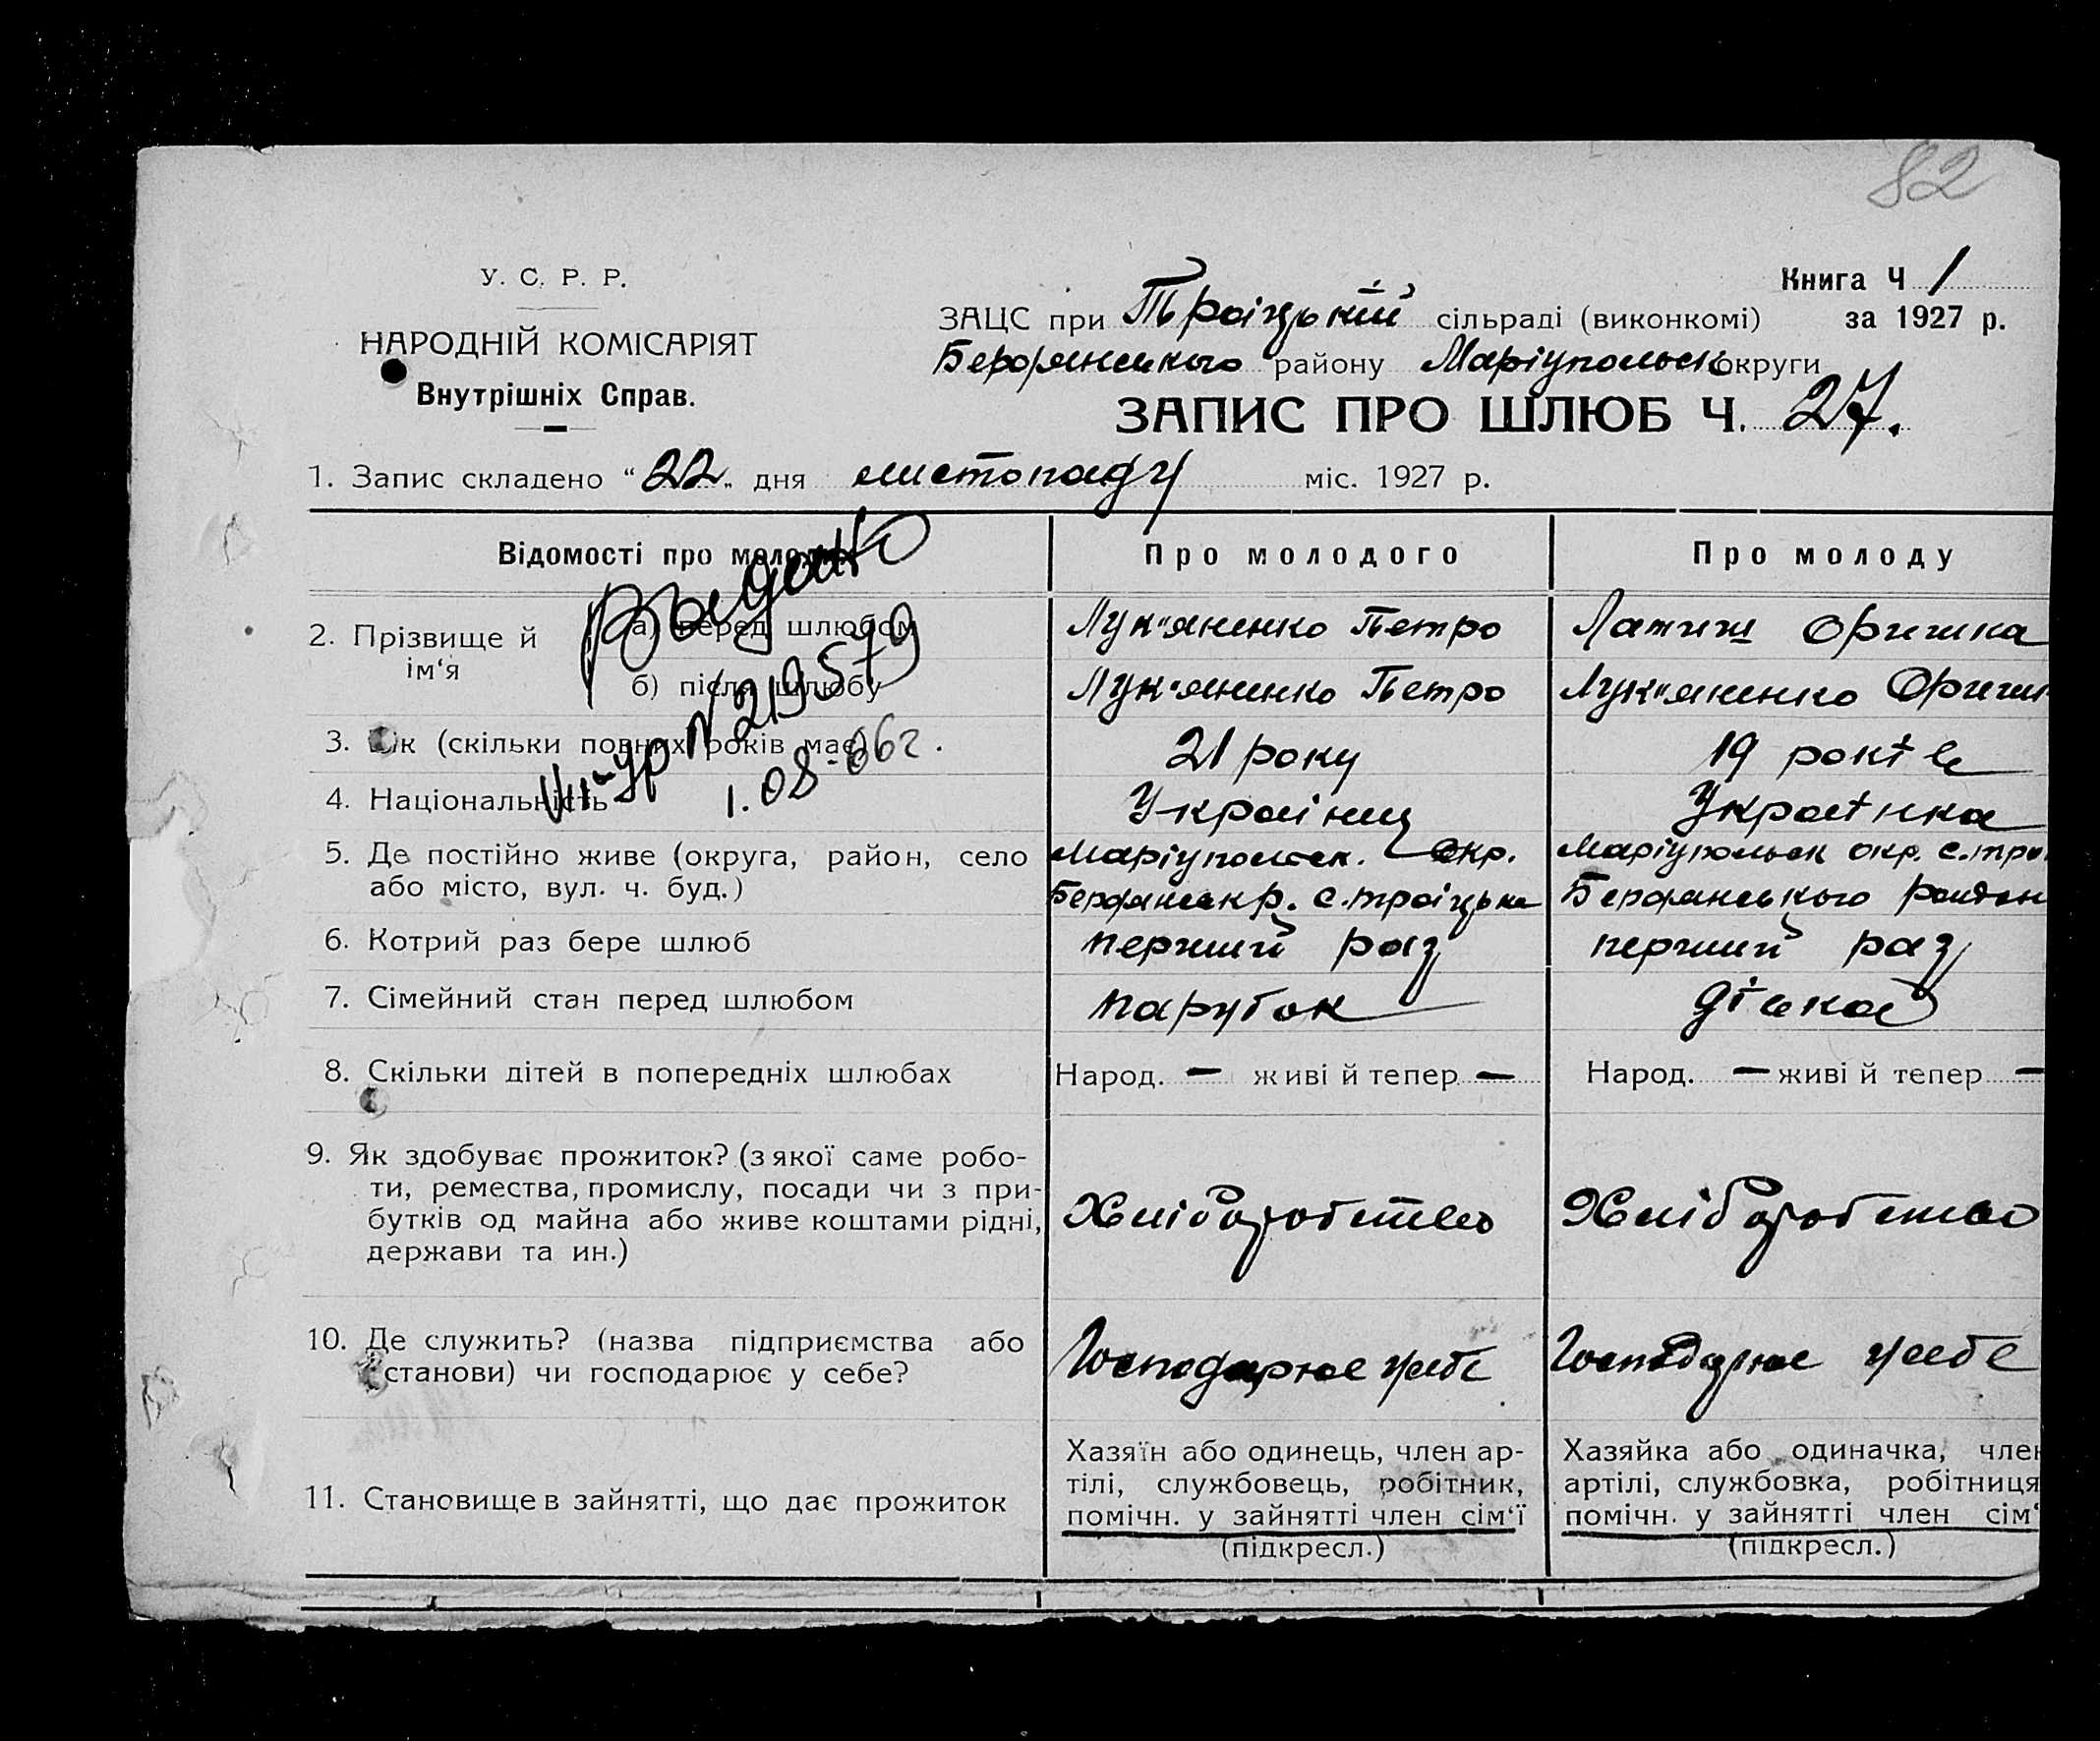 82
У. С. Р. Р.
НАРОДНІЙ КОМІСАРІЯТ
Внутрішніх Справ.
Книга Ч 1
за 1927 р.
ЗАЦС при Троіцькій сільраді (виконкомі)
Бердянського району Маріупольск округи
ЗАПИС ПРО ШЛЮБ Ч. 27.
1. Запис складено “22„ дня листопаду міс. 1927 р.
Відомості про молодих
Про молодого
Про молоду
2. Прізвище й ім‘я
а) перед шлюбом
Лук"яненко Петро
Латиш Оришка
б) після шлюбу
Лук"яненко Петро
Лук"яненко Ориш
N 219579
1.08.66г.
3. Вік (скільки повних років має)
21 року
19 років
4. Національність
Украінец
Украінка
5. Де постійно живе (округа, район, село
або місто, вул. ч. буд.)
Маріупольск. Окр.
Бердянськ р. с. троіцьке
Маріупольск окр. с. тро
Бердянського район
6. Котрий раз бере шлюб
перший раз
перший раз
7. Сімейний стан перед шлюбом
парубок
дівка
8. Скільки дітей в попередніх шлюбах
Народ. — живі й тепер —
Народ. — живі й тепер —
9. Як здобуває прожиток? (з якої саме робо-
ти, ремества, промислу, посади чи з при-
бутків од майна або живе коштами рідні,
держави та ин.)
Хліборобство
Хліборобство
10. Де служить? (назва підприємства або
установи) чи господарює у себе?
Господарює у себе
Господарює у себе
11. Становище в зайнятті, що дає прожиток
Хазяїн або одинець, член ар-
тілі, службовець, робітник,
помічн. у зайнятті член сім‘ї
(підкресл.)
Хазяйка або одиначка, член
артілі, службовка, робітниця
помічн. у зайнятті член сім‘
(підкресл.)